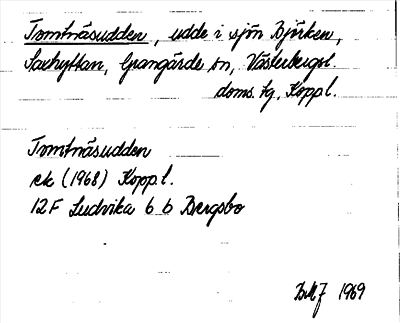 Tomtnäsudden, udde i sjön Björken,
Saxhyttan, Grangärde sn, Västerbergsl.
doms. fg, Koppl.
Tomtnäsudden
ek (1968) Koppl.
12F Ludvika 6 b Bergsbo
BMJ 1969